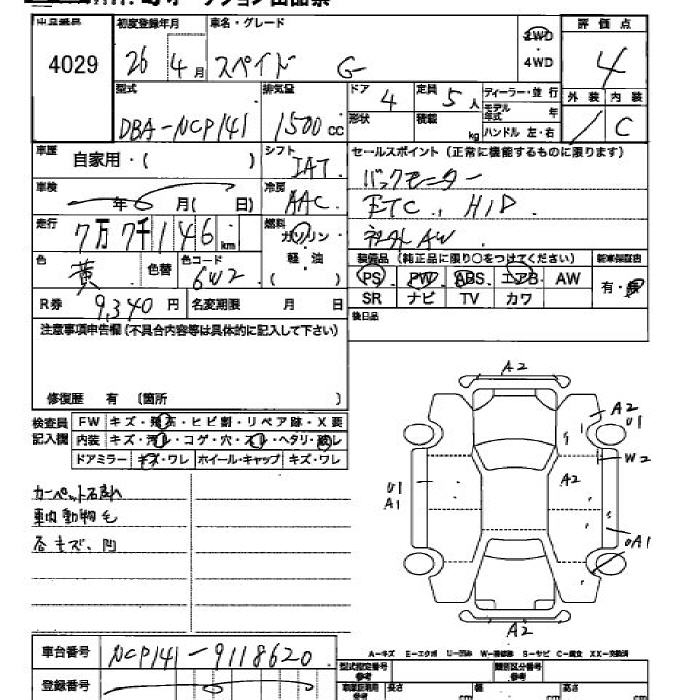 4029
初度登録年月 車名・グレード
26年 4月 スペイド G
2WD
4WD
評価点
4
外装 内装
C
型式 排気量
DBA-NCP141 1500cc
ドア 4 定員 5人
形状 積載 kg
ディーラー・並行
モデル年式 年
ハンドル 左・右
車歴 自家用・( )
シフト IAT
車検 年 6月( 日)
冷房 AAC
走行 7万7千146km
燃料 ガソリン・軽・油 ( )
色 黄 色替 色コード 6W2
R券 9,340円 名変期限 月 日
セールスポイント(正常に機能するものに限ります)
バックモニター
ETC. HID.
社外AW
装備品(純正品に限り○をつけてください) 新車保証書
PS PW ABS エアB AW 有・無
SR ナビ TV カワ
後日品
注意事項申告欄(不具合内容等は具体的に記入して下さい)
修復歴 有 〔箇所 〕
検査員記入欄
FW キズ・飛石・ヒビ割・リペア跡・X要
内装 キズ・汚レ・コゲ・穴・スレ・ヘタリ・破レ
ドアミラー キズ・ワレ ホイール・キャップ キズ・ワレ
車内動物毛
各キズ、凹
A2
A2
U1
W2
A2
U1
A1
A1
A2
A-キズ E-エクボ U-凹み W-補修跡 S-サビ C-腐食 XX-交換済
車台番号 NCP141-9118620
登録番号
型式指定番号 参考
類別区分番号 参考
長さ cm 幅 cm 高さ cm